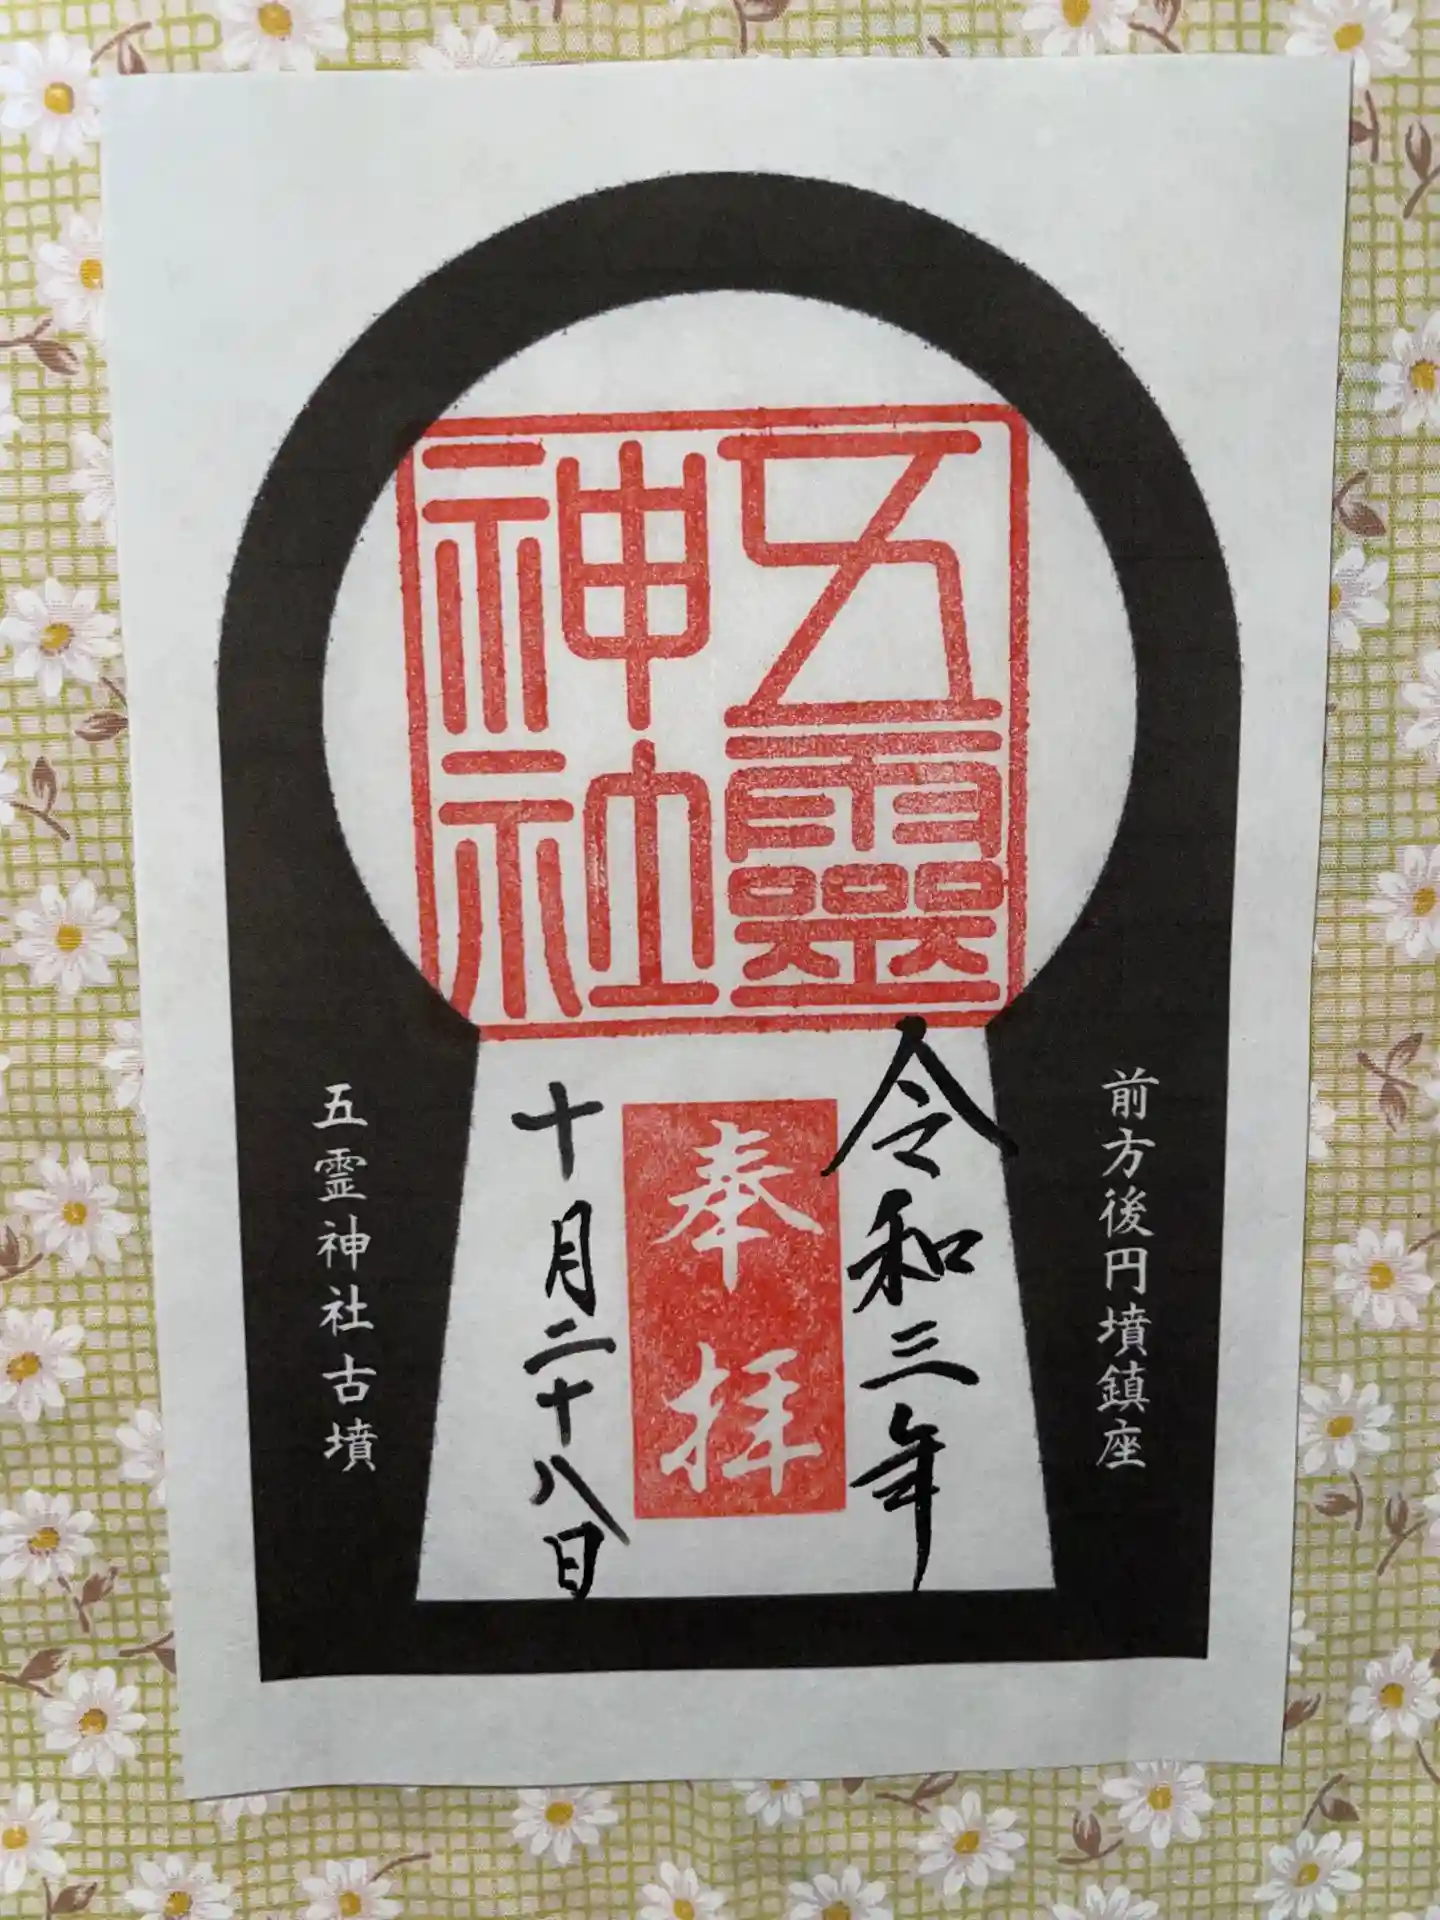 五靈
神社
前方後円墳鎮座
令和三年
奉拝
十月二十八日
五霊神社古墳